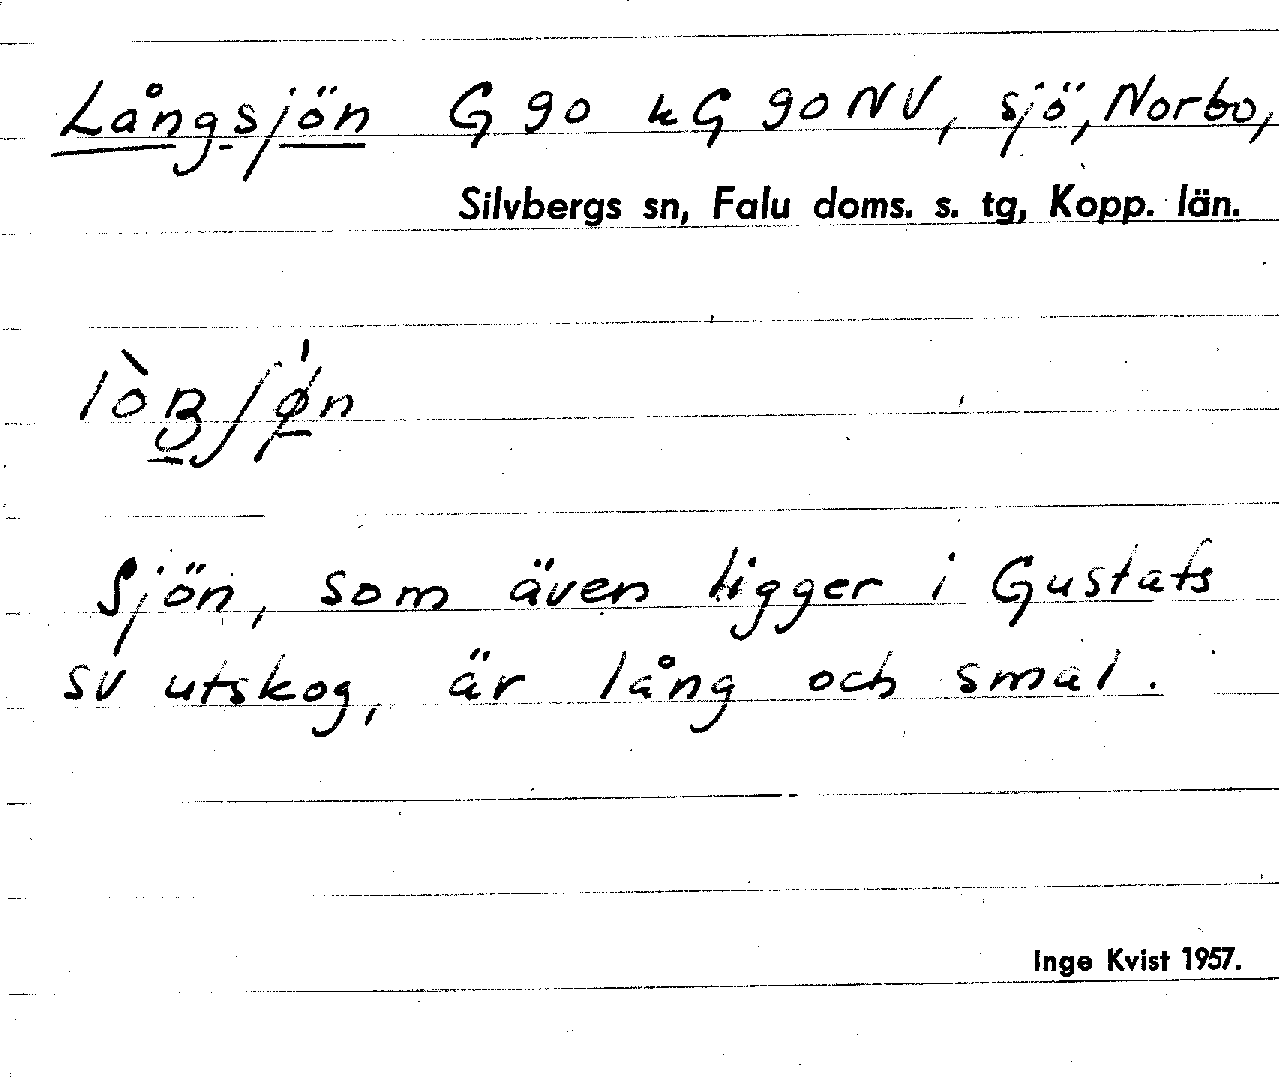 Långsjön G 90 kG 90 NV, sjö, Norbo,
Silvbergs sn, Falu doms. s. tg, Kopp. län.
Sjön, som även ligger i Gustafs
SV utskog, är lång och smal.
Inge Kvist 1957.